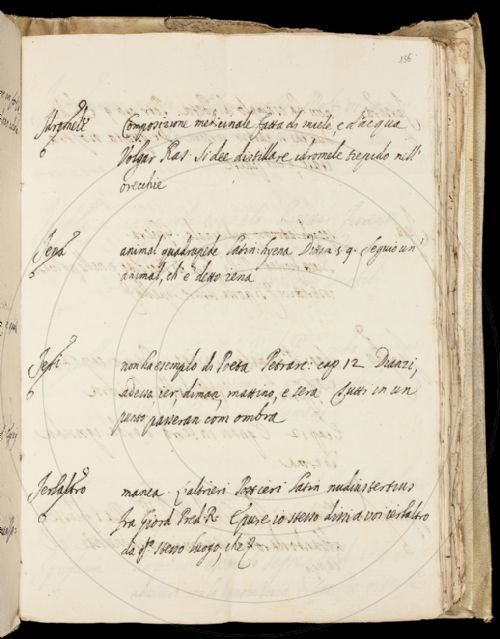 156
Idromele Composizione medicinale fatta di miele, e d'acqua
Volgar Ras. Si dee distillare idromele tiepido nell'
orecchie
Jena animal quadrupede Latin. hyena Dittam. 5. 9. Seguio un
animal, ch'è detto iena
Jeri non ha esemplo di Poeta Petrarc. cap 12 Dianzi,
adesso, ier, diman, mattino, e sera Tutti in un
punto passeran com ombra
Jerlaltro manca Latin nudiustertius
fra Giord. Pred. R. E pure io stesso dissi a voi ierlaltro
da sto stesso luogo, che